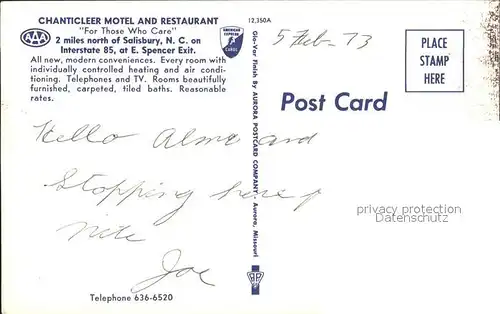 CHANTICLEER MOTEL AND RESTAURANT
"For Those Who Care"
AAA
2 miles north of Salisbury, N. C. on
Interstate 85, at E. Spencer Exit.
AMERICAN EXPRESS
All new, modern conveniences. Every room with
individually controlled heating and air condi-
tioning. Telephones and TV. Rooms beautifully
furnished, carpeted, tiled baths. Reasonable
rates.
12,350A
5 Feb - 73
PLACE
STAMP
HERE
Post Card
Glo-Var Finish By AURORA POSTCARD COMPANY, Aurora, Missouri
Hello Alma and
Stopping here
nite
Joe
privacy protection
Datenschutz
Telephone 636-6520